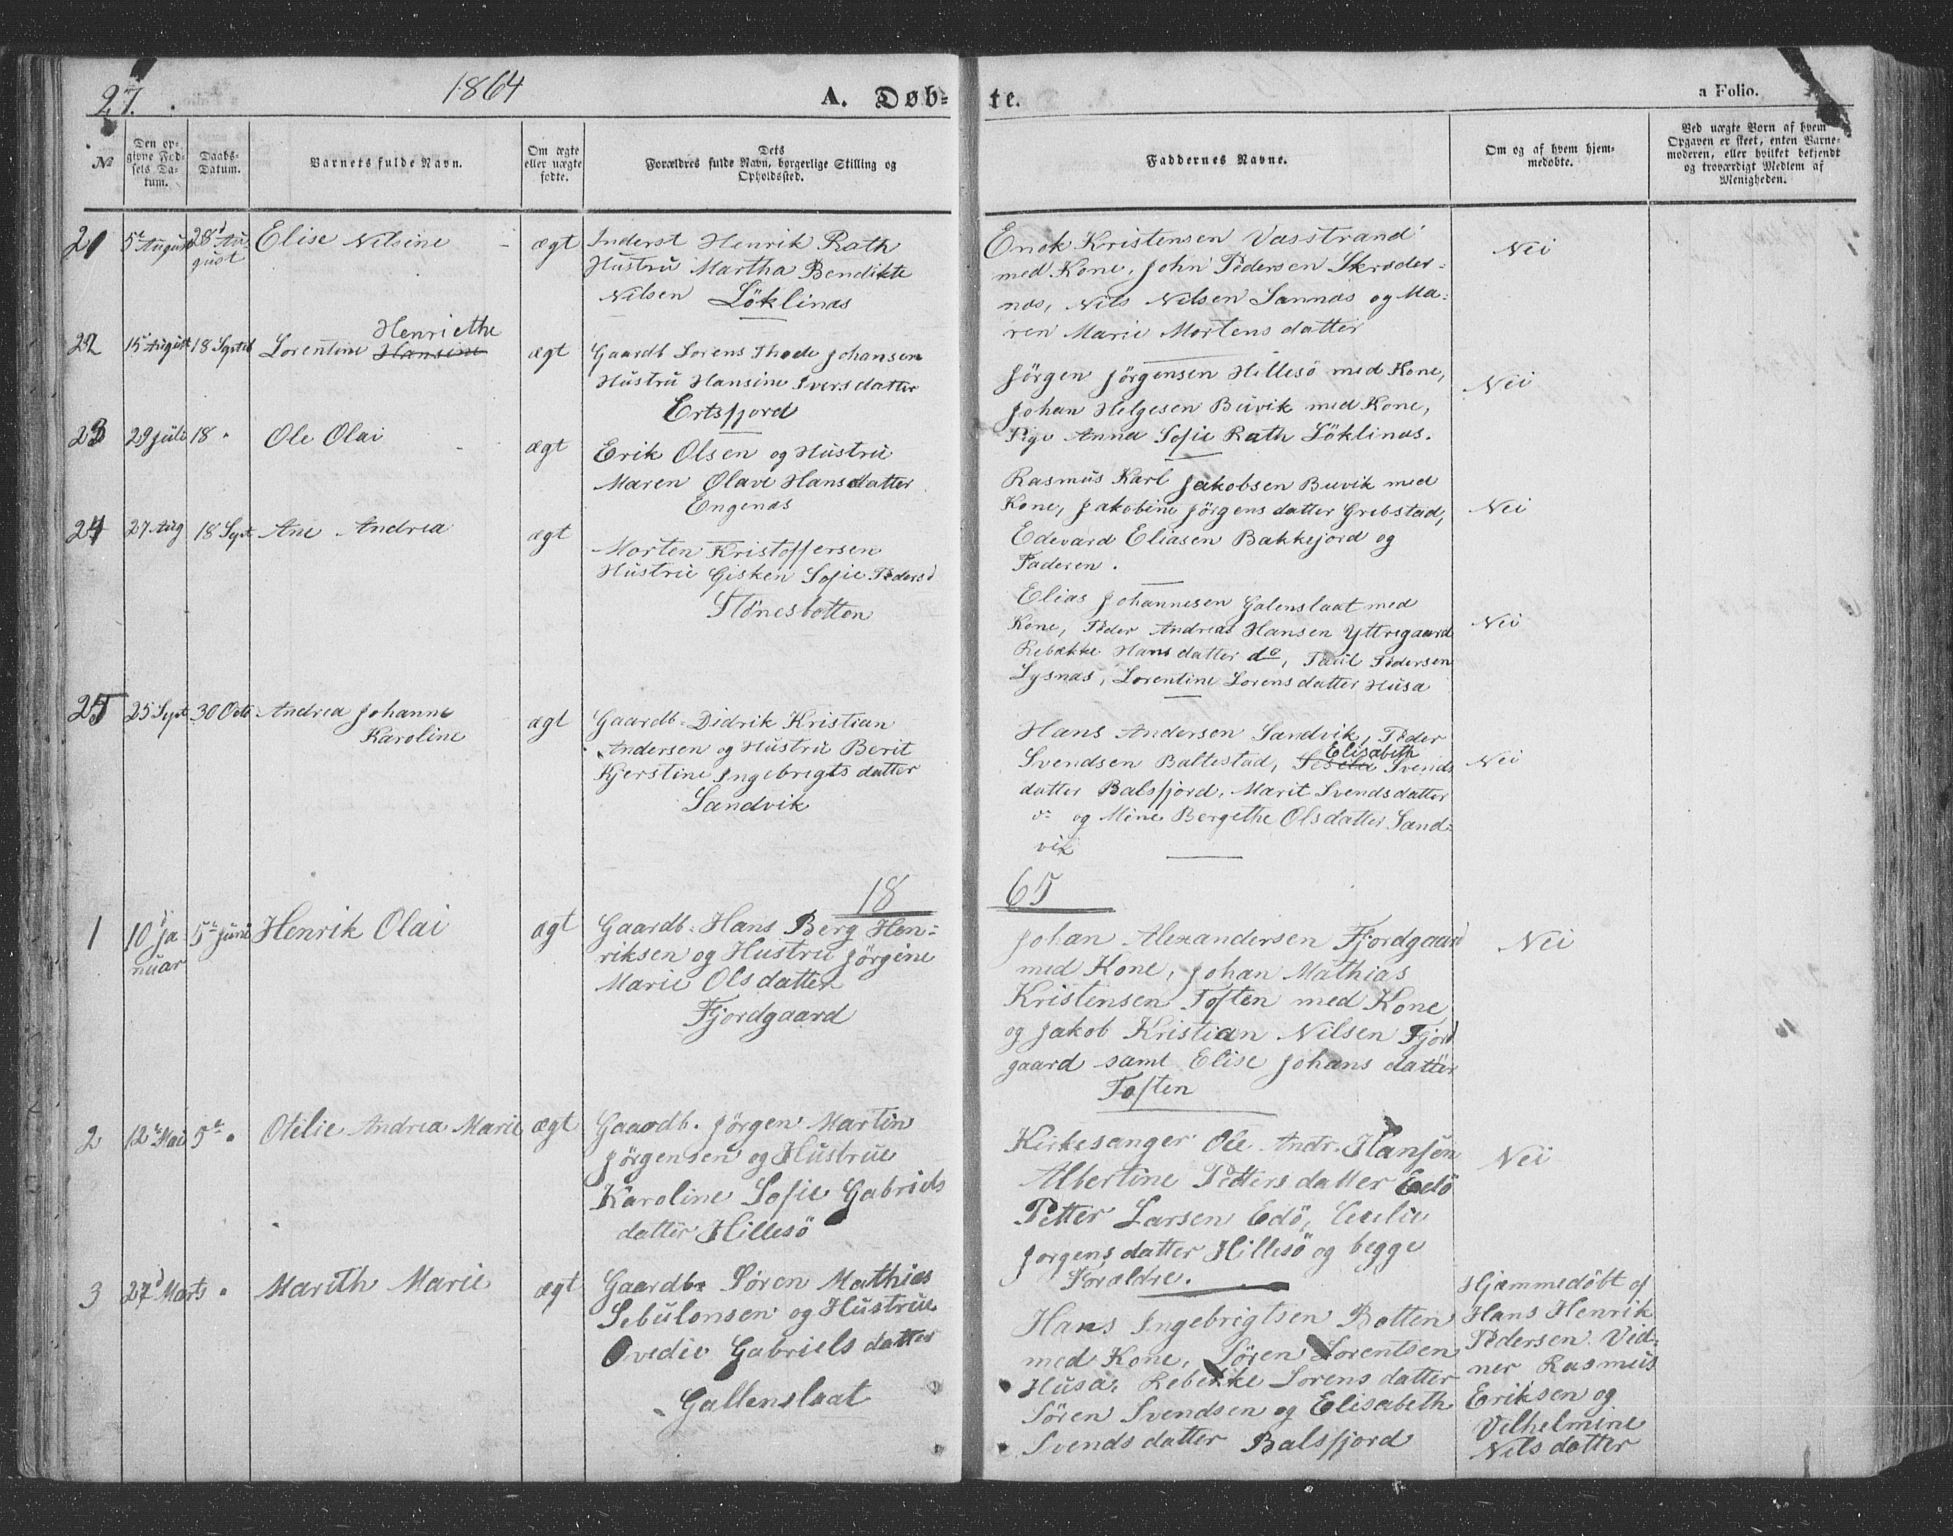 27.
1864
A. Døb-
te.
a Folio.
№
Den op-
givne Fød-
sels Da-
tum.
Daabs-
Datum.
Barnets fulde Navn.
Om ægte
eller uægte
fødte.
Dets
Forældres fulde Navn, borgerlige Stilling og
Opholdssted.
Faddernes Navne.
Om og af hvem hjem-
medøbte.
Ved uægte Børn af hvem
Opgaven er skeet, enten Barne-
moderen, eller hvilket bekjendt
og troværdigt Medlem af
Menigheden.
21
5te August
28d Au-
gust
Elise Nilsine
ægt
Inderst Henrik Rath
Hustru Martha Bendikte
Nilsen Löklinæs
Enok Kristensen Vasstrand
med Kone, John Pedersen Skreder-
næs, Nils Nilsen Sannæs og Ma-
ren Marie Mortensdatter
Nei
22
15 August
18 Septeb
Lorentine Hansine
Henriethe
ægt
Gaardb Lorens Thode Johansen
Hustru Hansine Iversdatter
Ertsfjord
Jörgen Jörgensen Hillesö med Kone,
Johan Helgesen Buvik med Kone,
Pige Anna Sofie Rath Löklinæs.
Nei
23
29 juli
18 "
Ole Olai
ægt
Erik Olsen og Hustru
Maren Olave Hansdatter
Engenæs
Rasmus Karl Jakobsen Buvik med
Kone, Jakobine Jörgensdatter Grebstad,
Edevard Eliasen Bakkejord og
Faderen.
Nei
24
27 Aug
18 Sept
Ane Andrea
ægt
Morten Kristoffersen
Hustru Gisken Sofie Pedersd
Stönesbotten
Elias Johannesen Galenslaat med
Kone, Peder Andreas Hansen Yttregaard
Rebekke Hansdatter do, Paul Pedersen
Lysnæs, Lorentine Lorensdatter Husa
Nei
25
25 Sept
30 Octo
Andrea Johanne
Karoline
ægt
Gaardb. Didrik Kristian
Andersen og Hustru Berit
Kjerstine Ingebrigtsdatter
Sandvik
Hans Andersen Sandvik, Peder
Elisabeth
Svendsen Baltestad, Svends
datter Balsfjord, Marit Svendsdatter
og Mine Bergethe Olsdatter Sand-
vik
Nei
18
65
1
10d Ja
nuar
5te Juni
Henrik Olai
ægt
Gaardb. Hans Berg Hen-
riksen og Hustru Jörgine
Marie Olsdatter
Fjordgaard
Johan Alexandersen Fjordgaard
med Kone, Johan Mathias
Kristensen Toften med Kone
og Jakob Kristian Nilsen Fjord
gaard samt Elise Johansdatter
Toften
Nei
2
12te Mai
5te "
Otelie Andrea Marie
ægt
Gaardb. Jörgen Martin
Jörgensen og Hustrue
Karoline Sofie Gabriels
datter Hillesö
Kirkesanger Ole Andr. Hansen
Albertine Pettersdatter Edö
Petter Larsen Edö, Cecilie
Jörgensdatter Hillesö og begge
Forældre.
Nei
3
27d Marts
"
Marith Marie
ægt
Gaardbr Sören Mathias
Sebulonsen og Hustrue
Ovedie Gabrielsdatter
Gallenslaat
Hans Ingebrigtsen Botten
med Kone, Sören Lorentsen
Husa, Rebekke Sorensdatter
Sören Svendsen og Elisabeth
Svendsdatter Balsfjord
Hjæmmedöbt af
Hans Henrik
Pedersen. Vid-
ner Rasmus
Eriksen og
Vilhelmine
Nilsdatter